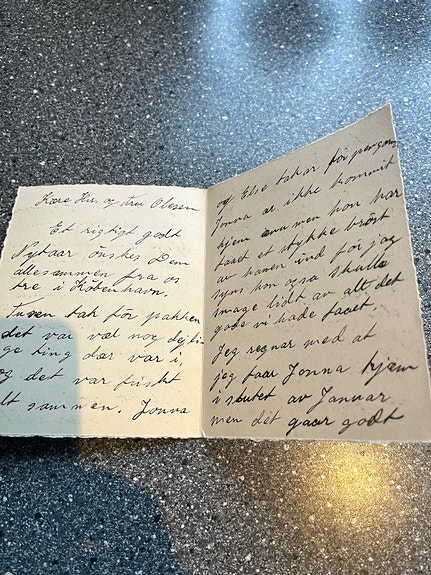 Kære Hr. og Fru Olesen
Et rigtigt godt
Nytaar önskes Dem
allesammen fra os
tre i Köbenhavn.
Tusen tak för pakken
det var væl nog dejli-
ge ting dær var i,
og det var friskt
alt sammen. Jonna
og Else takar för pengene
Jonna ær ikke kommit
hjem ænu men hon har
faaet et stykke bröst
av hanen ind för jag
syns hon ogsa skulle
smage lidt av alt det
gode vi hade faaet.
Jeg regnar med at
jeg faar Jonna hjæm
i slutet av Januar
men det gaar godt